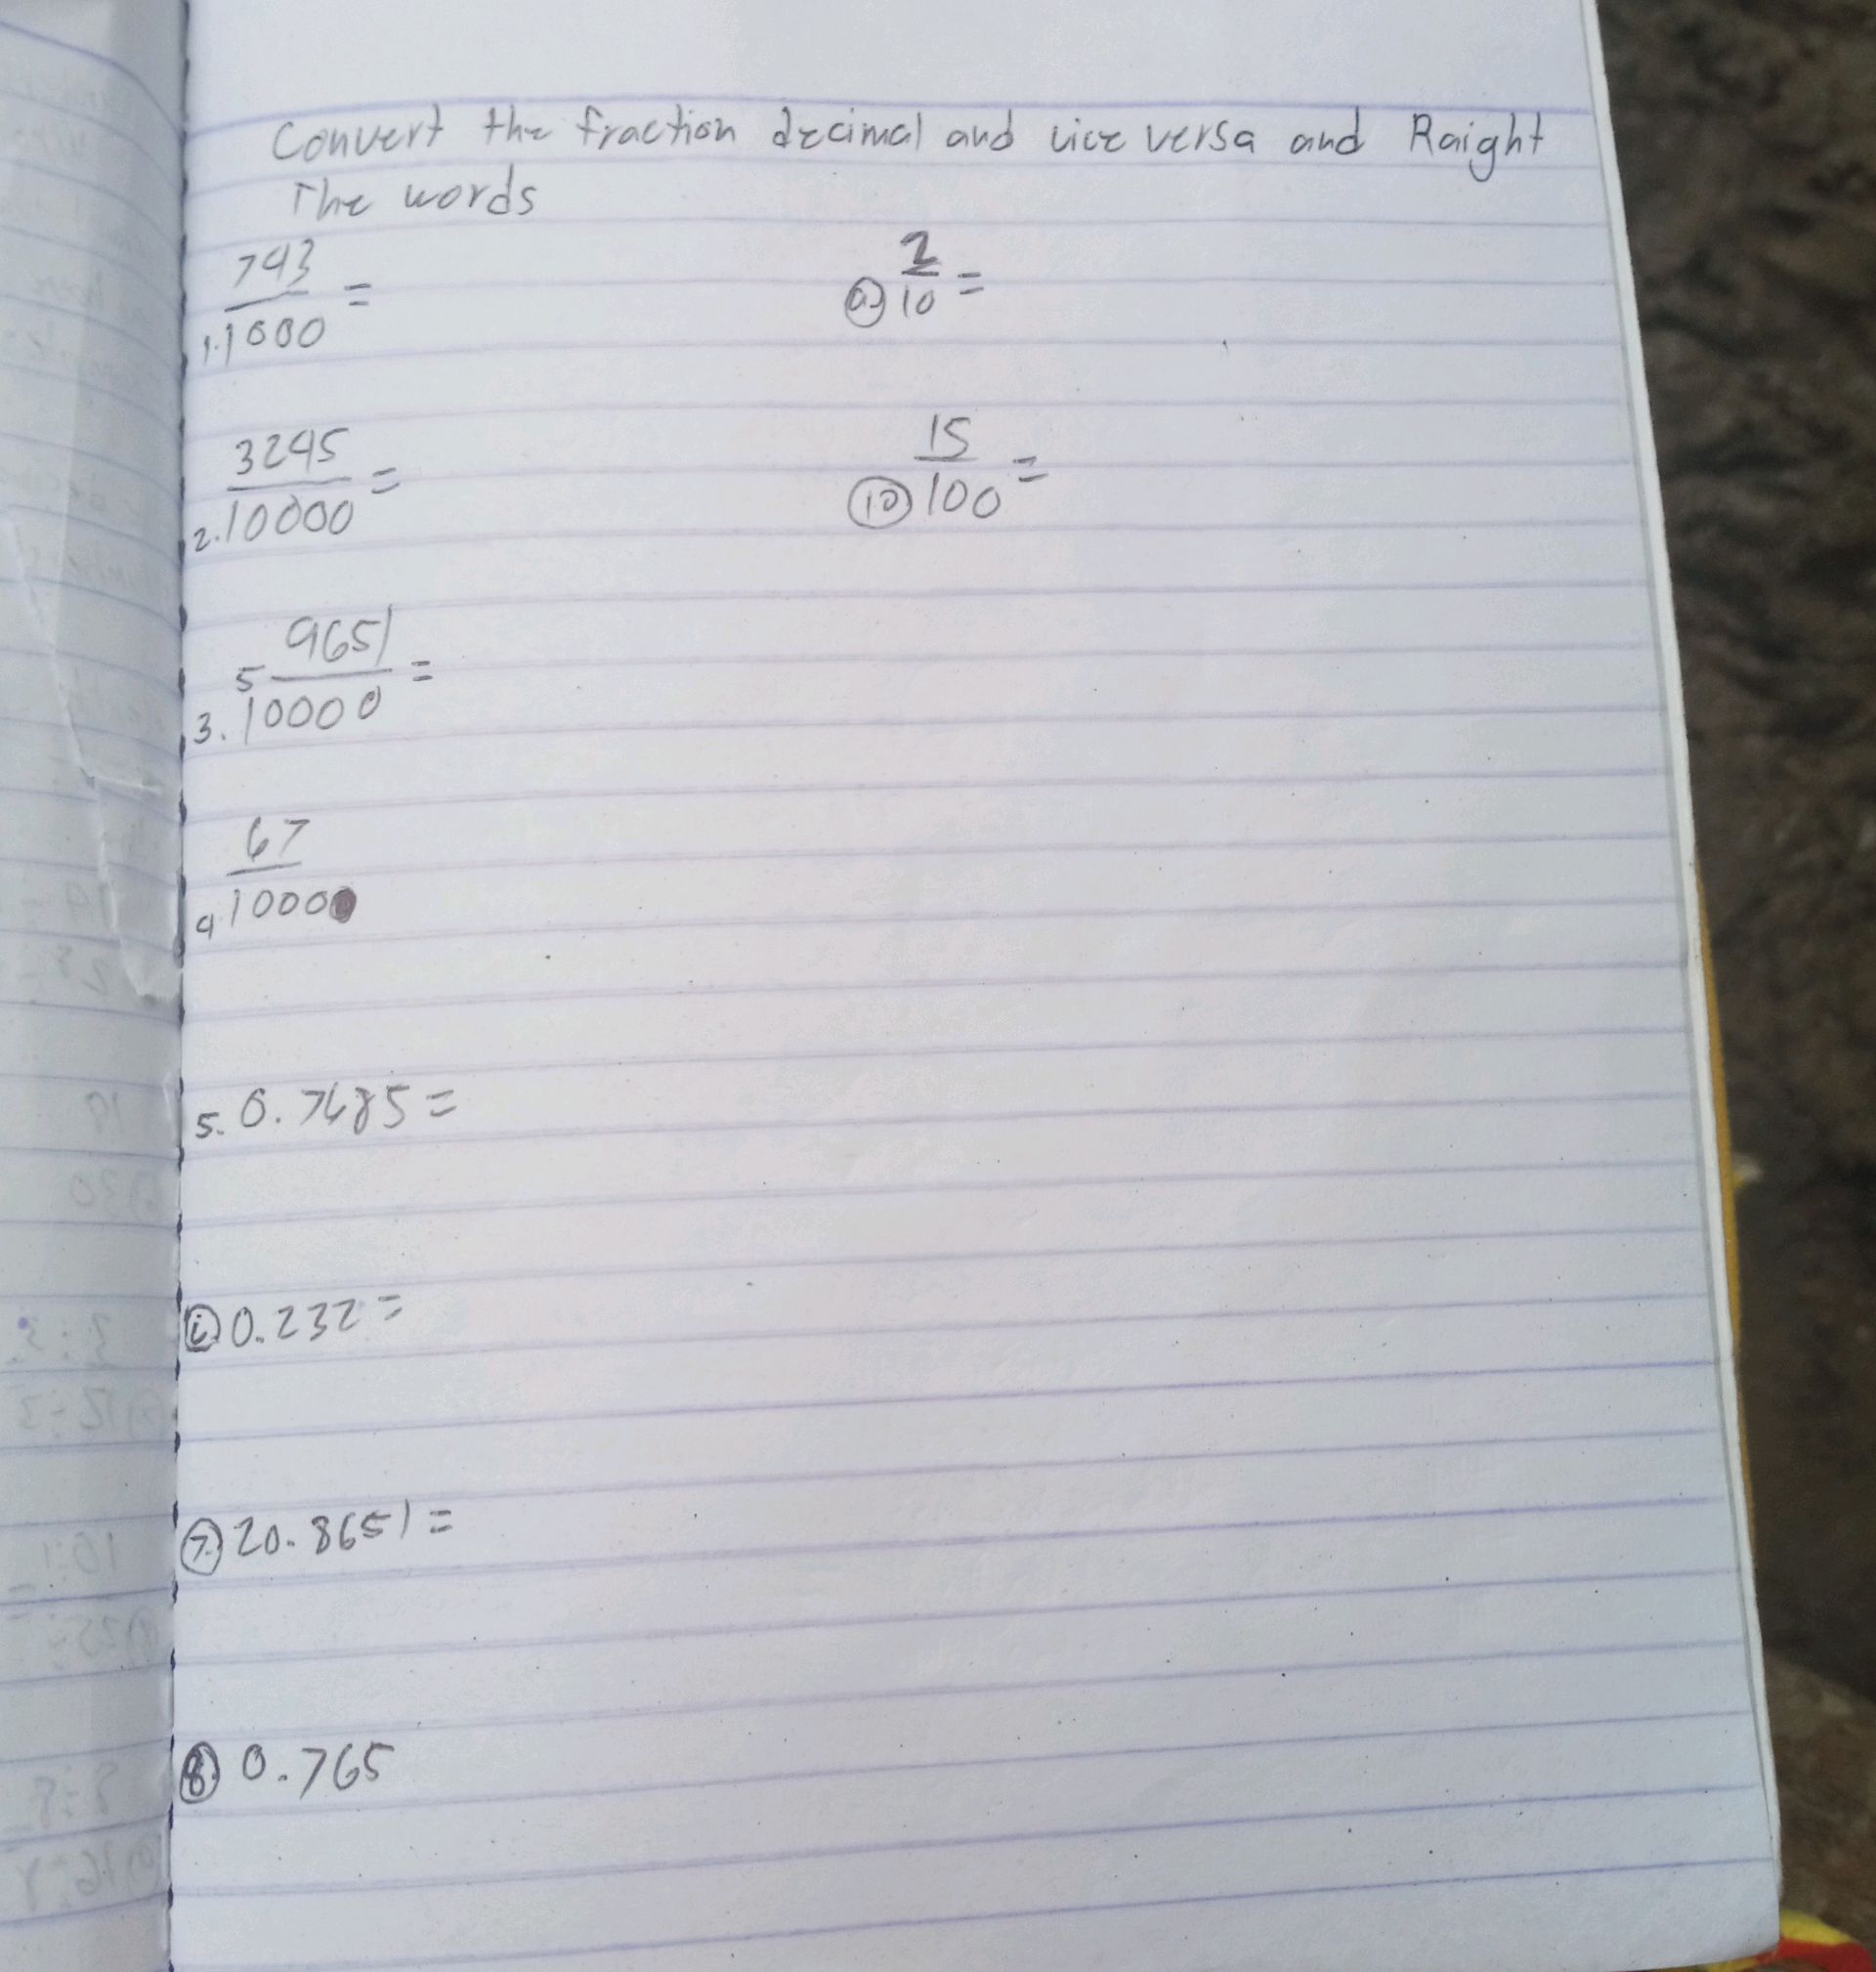 Convert the fraction decimal and vice versa and Raight
The words
1. 743/1000 =
2. 3245/10000 =
3. 5 9651/10000 =
4. 67/1000
5. 0.7485 =
6. 0.232 =
7. 20.8651 =
8. 0.765
9. 2/10 =
10. 15/100 =